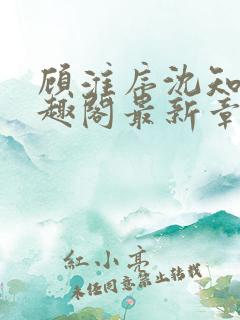 顾淮辰沈知
趣阁最新章
红小亭
未经同意禁止转载